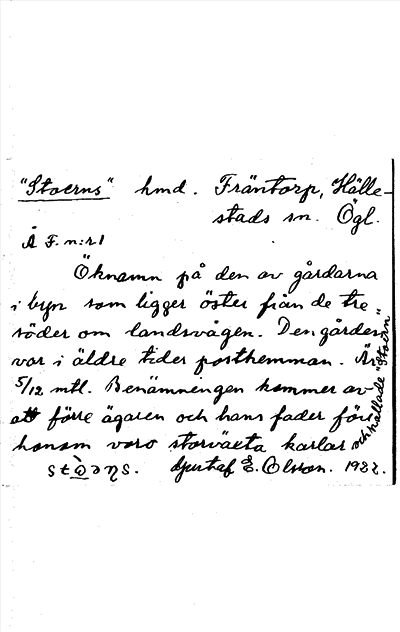 "Stoerns" hmd. Fräntorp, Hälle-
stads sn. Ögl.
Å F. n:r 1
Öknamn på den av gårdarna
i byn som ligger öster från de tre
söder om landsvägen. Den gården
var i äldre tider posthemman. Är
5/12 mtl. Benämningen kommer av
att förre ägaren och hans fader före
honom voro storväxta karlar
och kallade "Stoern"
Gustaf E. Olsson. 1932.